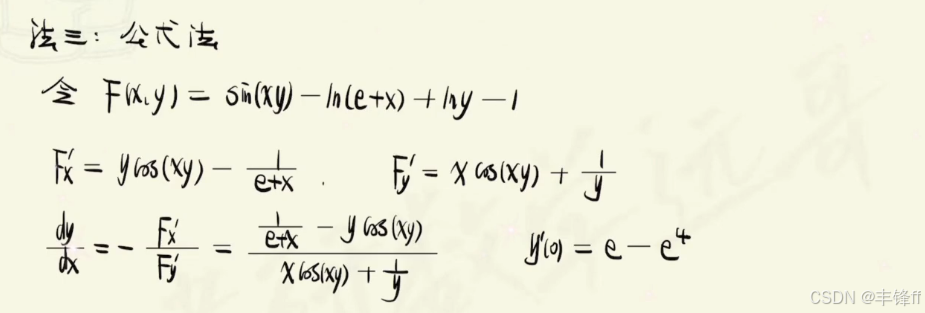 法三：公式法
令 F(x,y) = sin(xy) - ln(e+x) + lny - 1
F'x = y cos(xy) - 1/(e+x) . F'y = x cos(xy) + 1/y
dy/dx = - F'x/F'y = (1/(e+x) - y cos(xy))/(x cos(xy) + 1/y) y'(0) = e - e^4
CSDN @丰锋ff